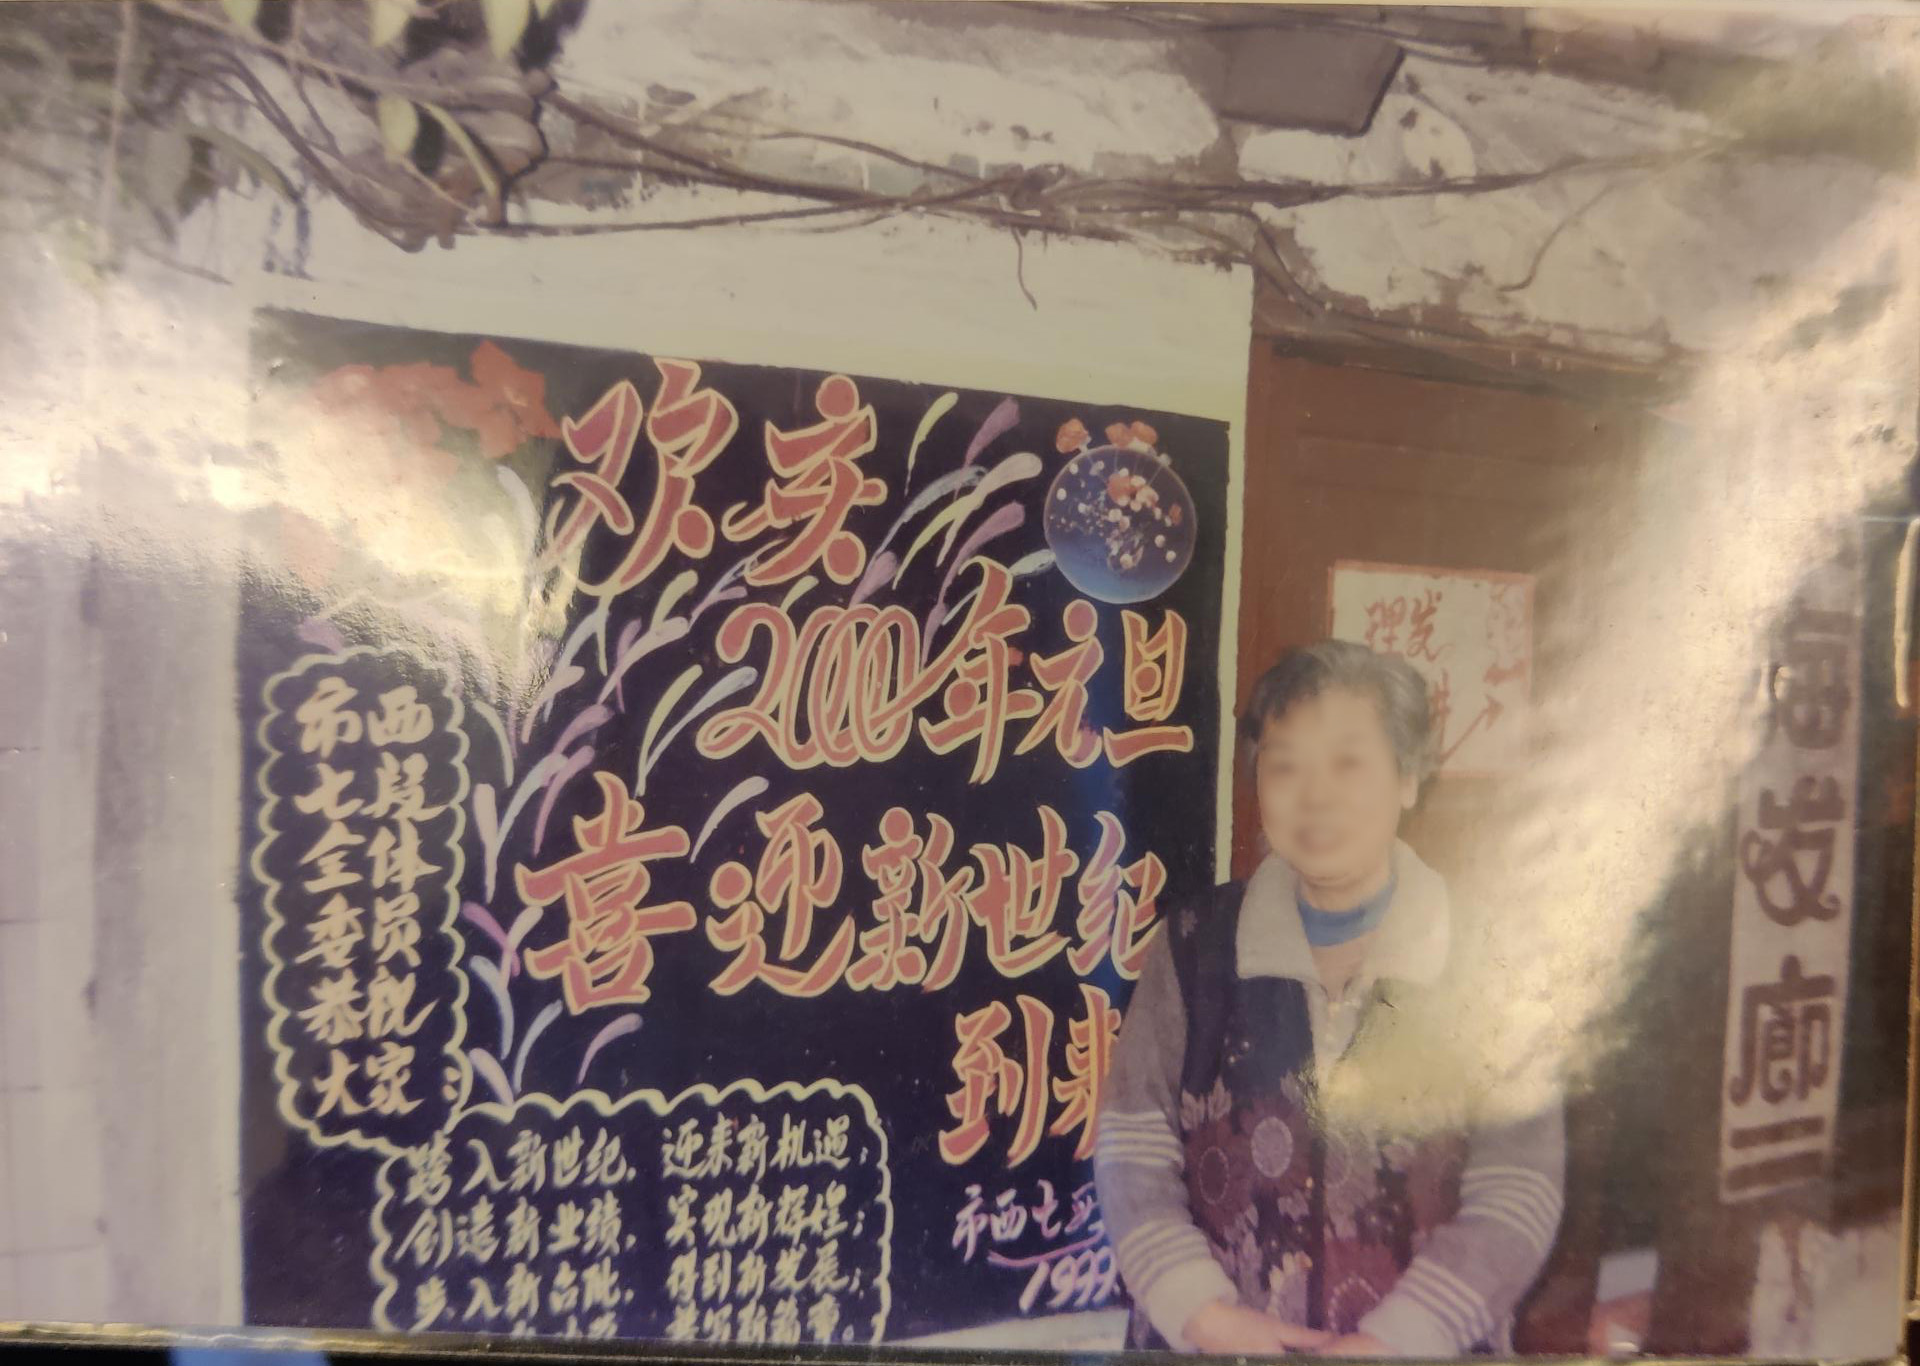 欢庆
2000年元旦
喜迎新世纪
到来
市西
七段
全体
委员
恭祝
大家：
跨入新世纪，迎来新机遇；
创造新业绩，实现新辉煌；
步入新台阶，得到新发展；
谱写新篇章。
市西七
1999.
理发
发廊